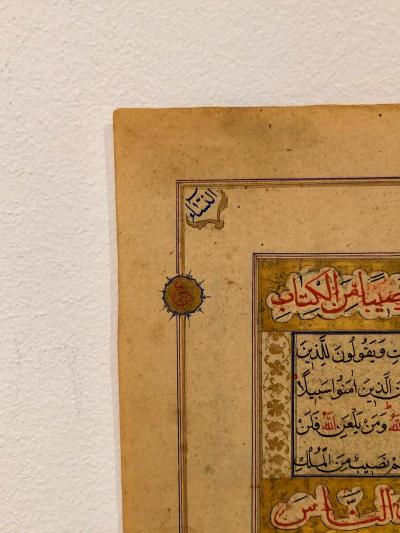 النساء
نصيبا من الكتاب
ت وَيَقُولُونَ لِلَّذِينَ
الَّذِينَ اٰمَنُوا سَبِيلًا
اللّٰهُ وَمَنْ يَلْعَنِ اللّٰهُ فَلَنْ
لَهُمْ نَصِيبٌ مِنَ الْمُلْكِ
النَّاسَ